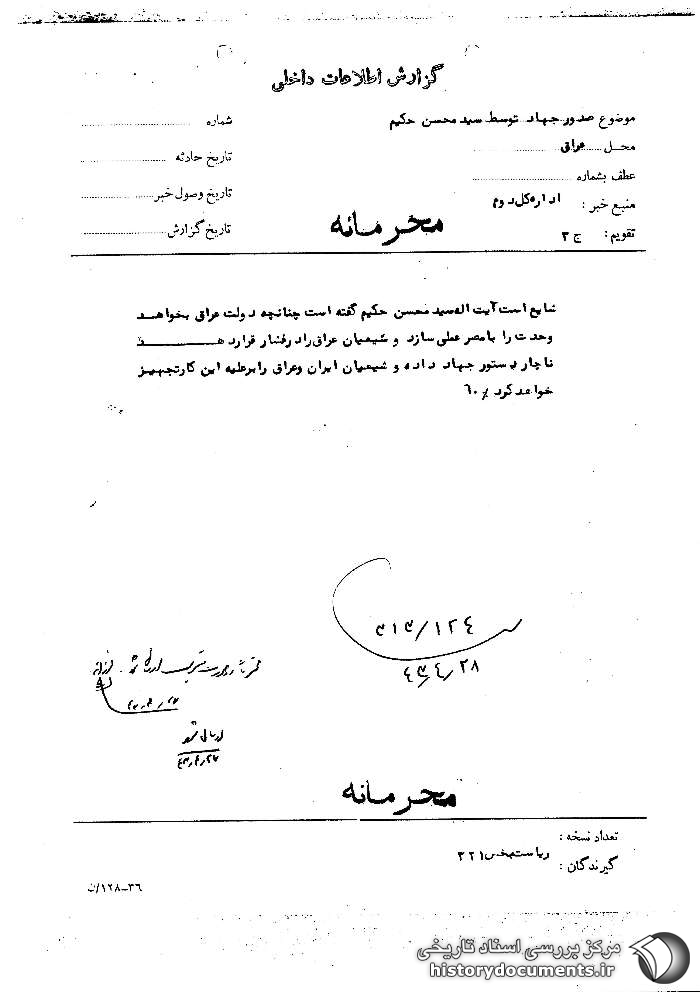 گزارش اطلاعات داخلی
موضوع صدور جهاد توسط سید محسن حکیم
محل عراق
عطف بشماره
منبع خبر : اداره کل دوم
تقویم : ج ۲
شماره
تاریخ حادثه
تاریخ وصول خبر
تاریخ گزارش
محرمانه
شایع است آیت اله سید محسن حکیم گفته است چنانچه دولت عراق بخواهد
وحدت را با مصر عملی سازد و شیعیان عراق را در فشار قرار دهد
ناچار دستور جهاد داده و شیعیان ایران و عراق را بر علیه این کار تجهیز
خواهد کرد
۳۱۳/۱۲۴
۴۳/۴/۲۸
۴۳/۴/۲۷
محرمانه
تعداد نسخه :
گیرندگان : ریاست بخش ۳۲۱
۳۶-۱۲۸/ن
مرکز بررسی اسناد تاریخی
historydocuments.ir